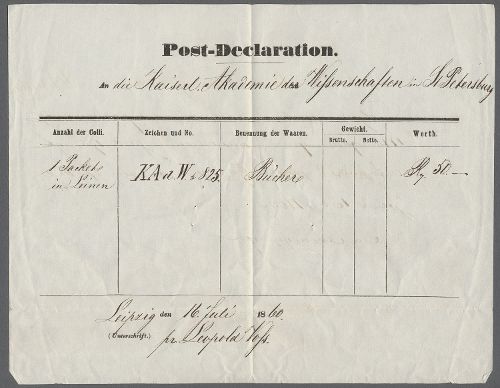 Post-Declaration.
An die Kaiserl. Akademie der Wissenschaften in St Petersburg
Anzahl der Colli. Zeichen und No. Benennung der Waaren. Gewicht. Werth.
Brutto. Netto.
1 Packet KAdW 825. Bücher 50.—
in Leinen
Leipzig den 16 Juli 1860.
(Unterschrift.) pr. Leopold Voss.